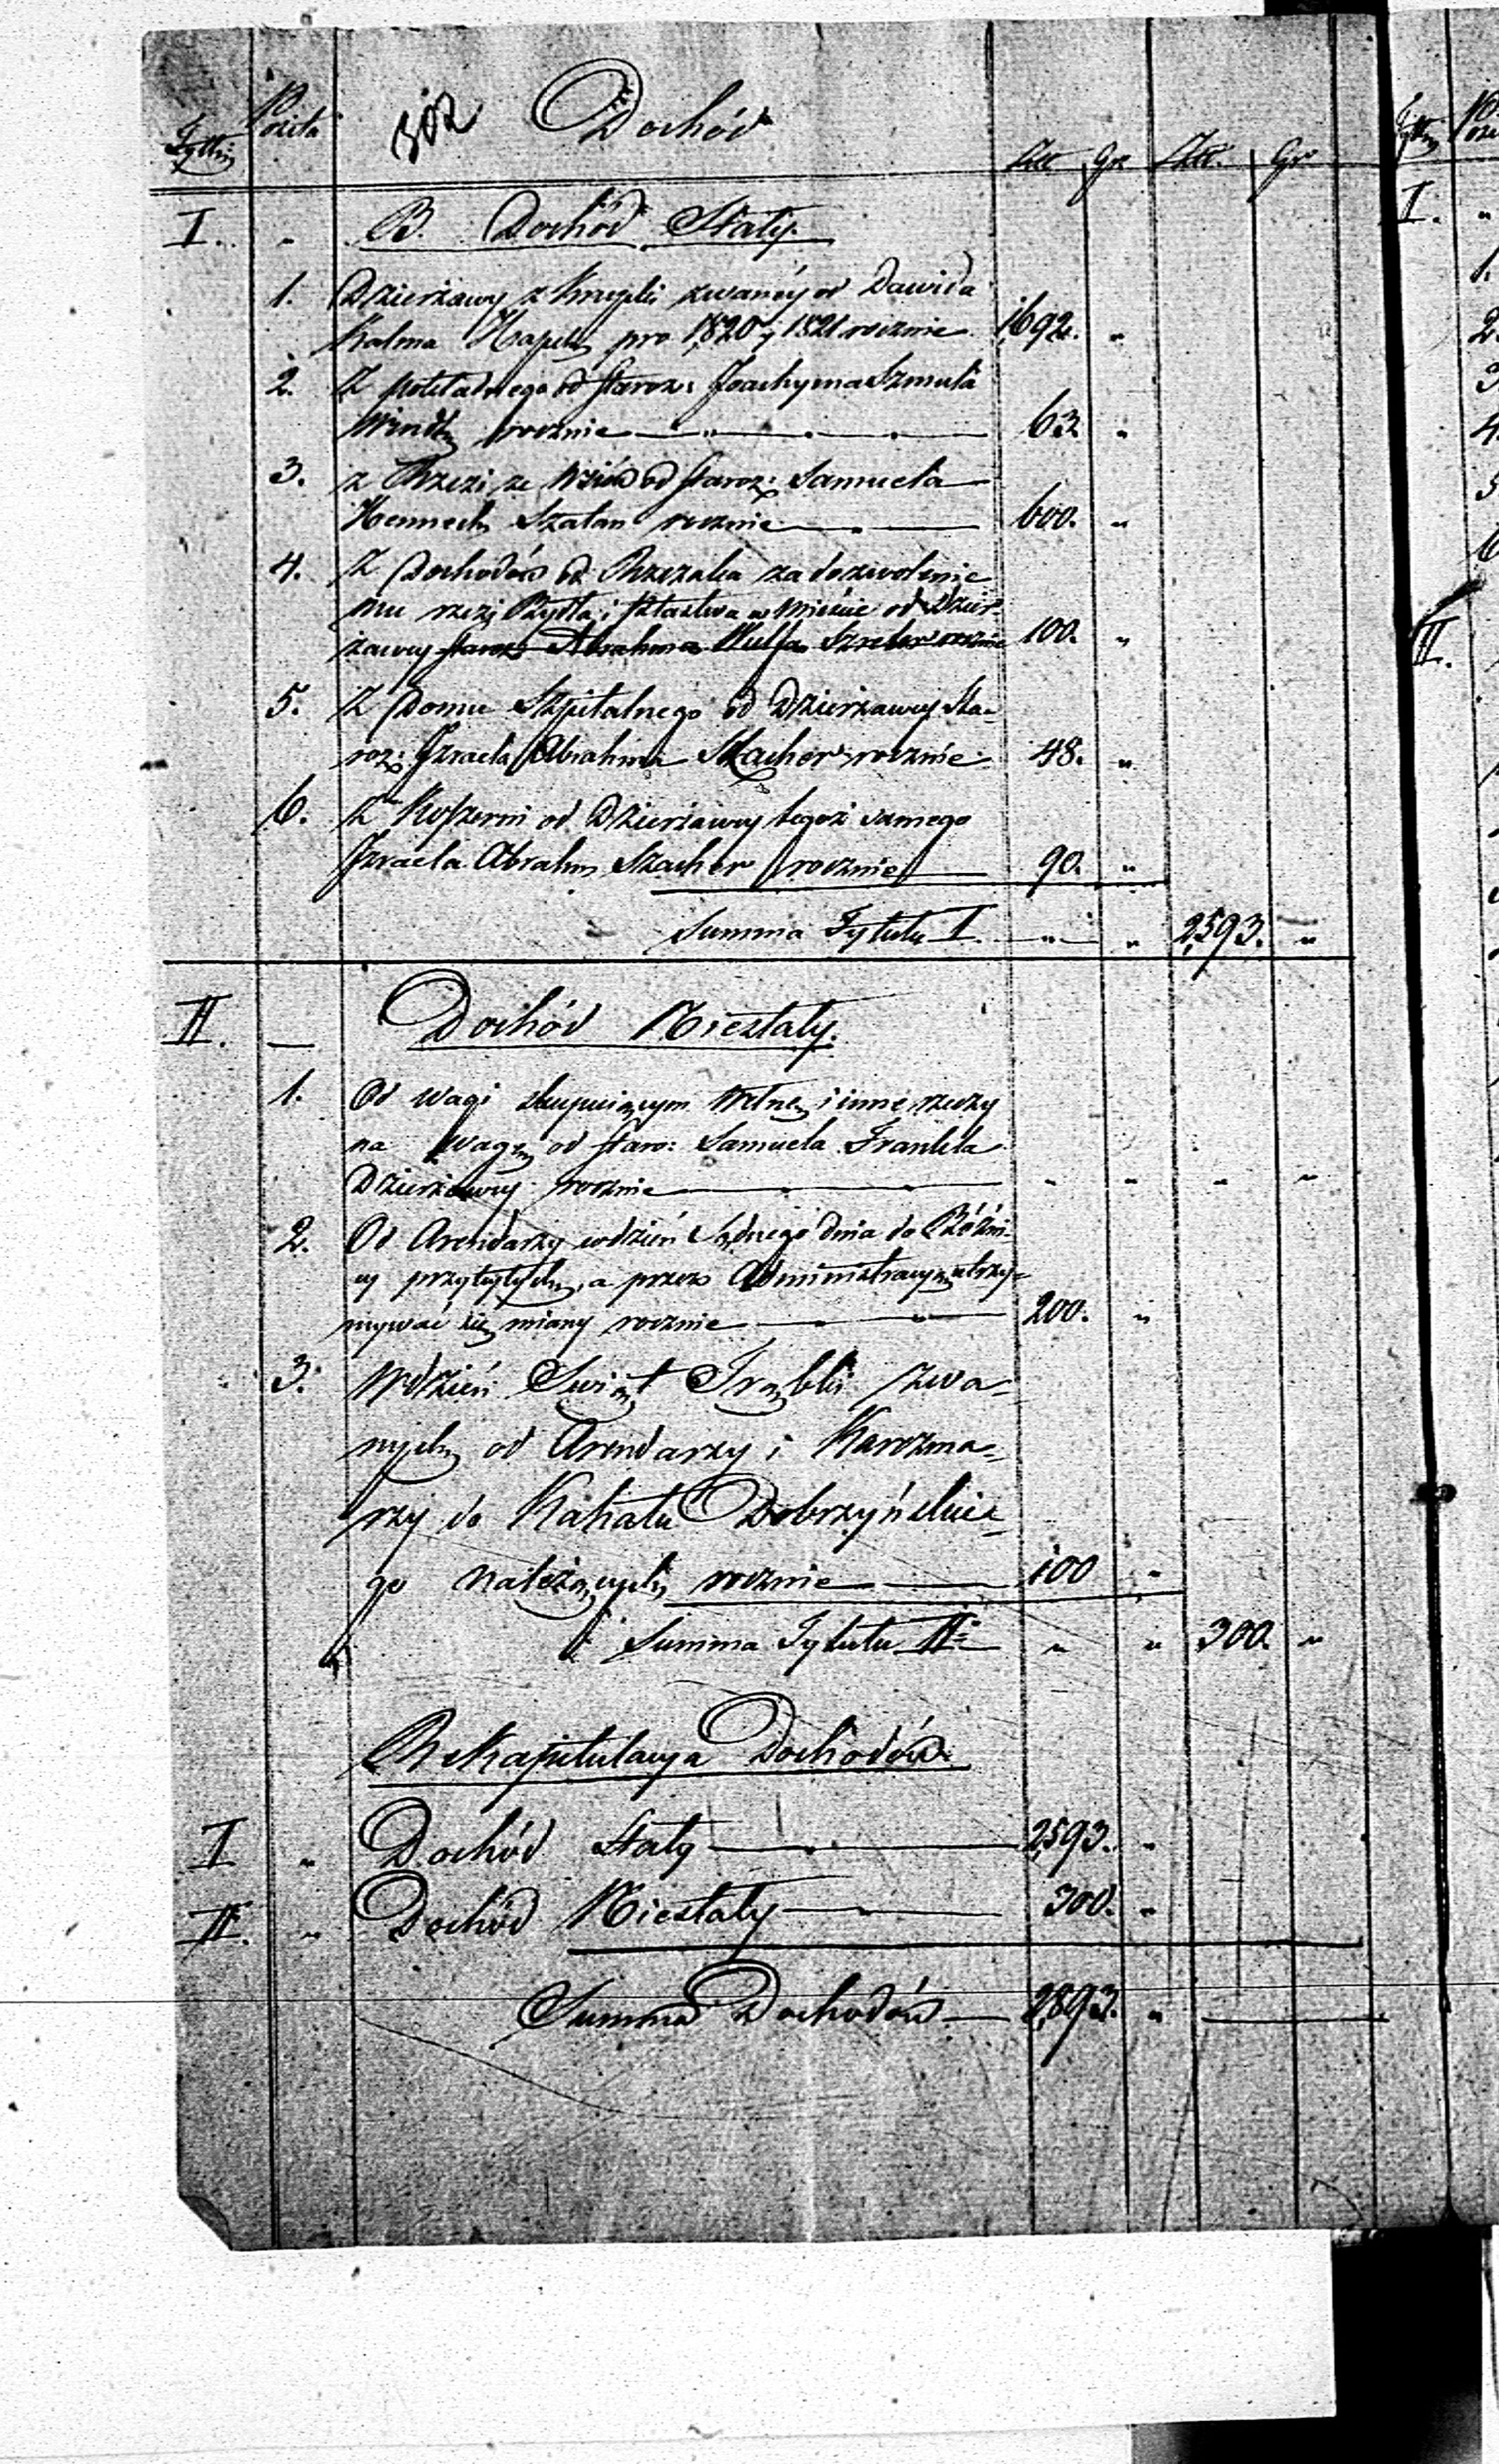 Tytuł Pozita 302 Dochód Złt Gr Złt. Gr
I. „ B. Dochód Stały.
1. Dzierżawy z Krupki zwanéy od Dawida
Kalma pro 1820/1821 rocznie 1,692. „
2. Z od staroz: Joachyma Szmula
rocznie 63. „
3. z Rzezi ze Wsiów od staroz: Samuela
Hennech Szatan rocznie 600. „
4. Z Dochodów od Rzezaka za dozwolenie
mu rzezi Bydła i ptastwa w Mieście od Dzier-
żawcy staroz Abrahma Wulfa rocznie 100. „
5. Z Domu Szpitalnego od Dzierżawcy Sta-
roz: Izraela Abrahma Szacher rocznie 48. „
6. Z Koszerni od Dzierżawcy tegoż samego
Izraela Abrahm Szacher rocznie 90. „
Summa Tytułu I. „ „ 2,593. „
II. — Dochód Niestały.
1. Od wagi skupuiącym Wełnę i inne rzeczy
na wagę od staro: Samuela Frankla
Dzierżawcy rocznie „ „ „ „
2. Od Arendarzy wdzień Sądnego dnia do Bóżni-
cy przybyłych, a przez Administracyą utrzy-
mywać się miany rocznie 200. „
3. Wdzień Swiąt Trąbki zwa-
nych od Arendarzy i Karczma-
rzy do Kahału Dobrzyńskie-
go należących rocznie 100 „
Summa Tytułu II. „ „ 300. „
Rekapitulacya Dochodów.
I „ Dochód Stały 2,593. „
II. „ Dochód Niestały 300. „
Summa Dochodów 2,893. „